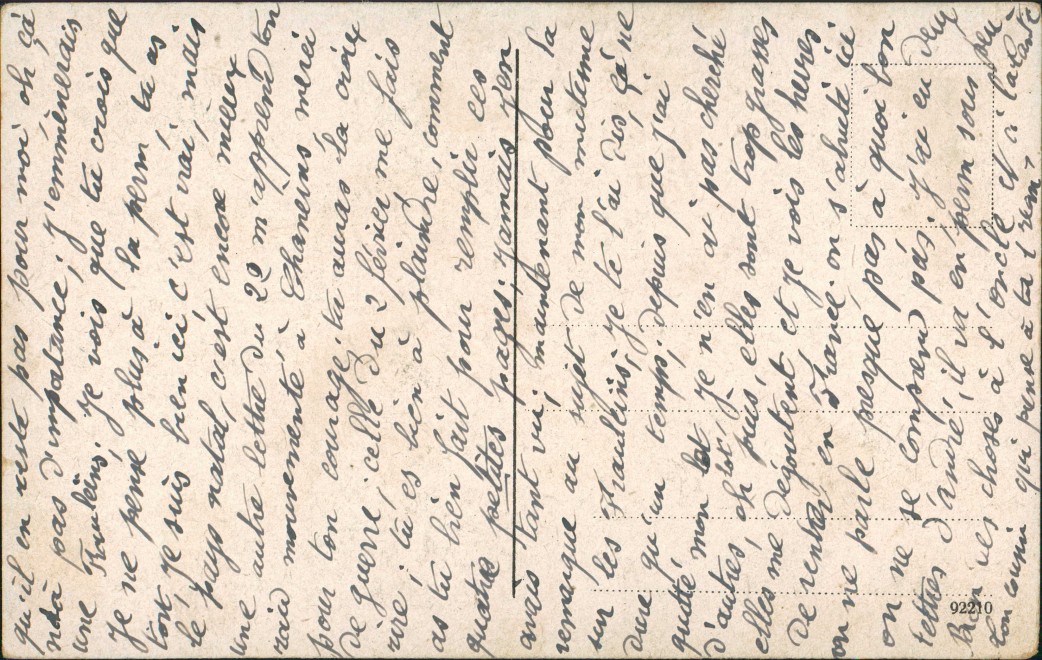 qu-il en reste pas pour moi oh ça
n'a pas d'impotance, j'emmènerais
une Roulens, je vois que tu crois que
Je ne pense plus à la perm tu as
tort, Je suis bien ici c'est vrai, mais
le pays natal, c'est encore mieux
une autre lettre du 22 m'apprend ton
raid mouvementé à merci
pour ton courage, tu auras la croix
de guerre, celle du 2 février me fais
rire, tu es bien à plaindre, comment
as tu bien fait pour remplir ces
quatre petites pages. Jamais J'en
avais tant vu, maintenant pour la
remarque au sujet de mon mutisme
sur les Je te l'ai dis çà ne
dure qu'un temps. depuis que J'ai
quitté mon lot Je n'en ai pas cherché
d'autres, oh toi, puis, elles sont trop grasses
elles me dégoutent et Je vois les heures
de rentrer en France. on s'ahurit ici
on ne parle presque pas à quoi bon
on ne se comprend pas, J'ai eu deux
lettres d'andré, il va en perm sous peu
Bien des choses à l'oncle et à la tante
ton ami qui pense à ta
92210